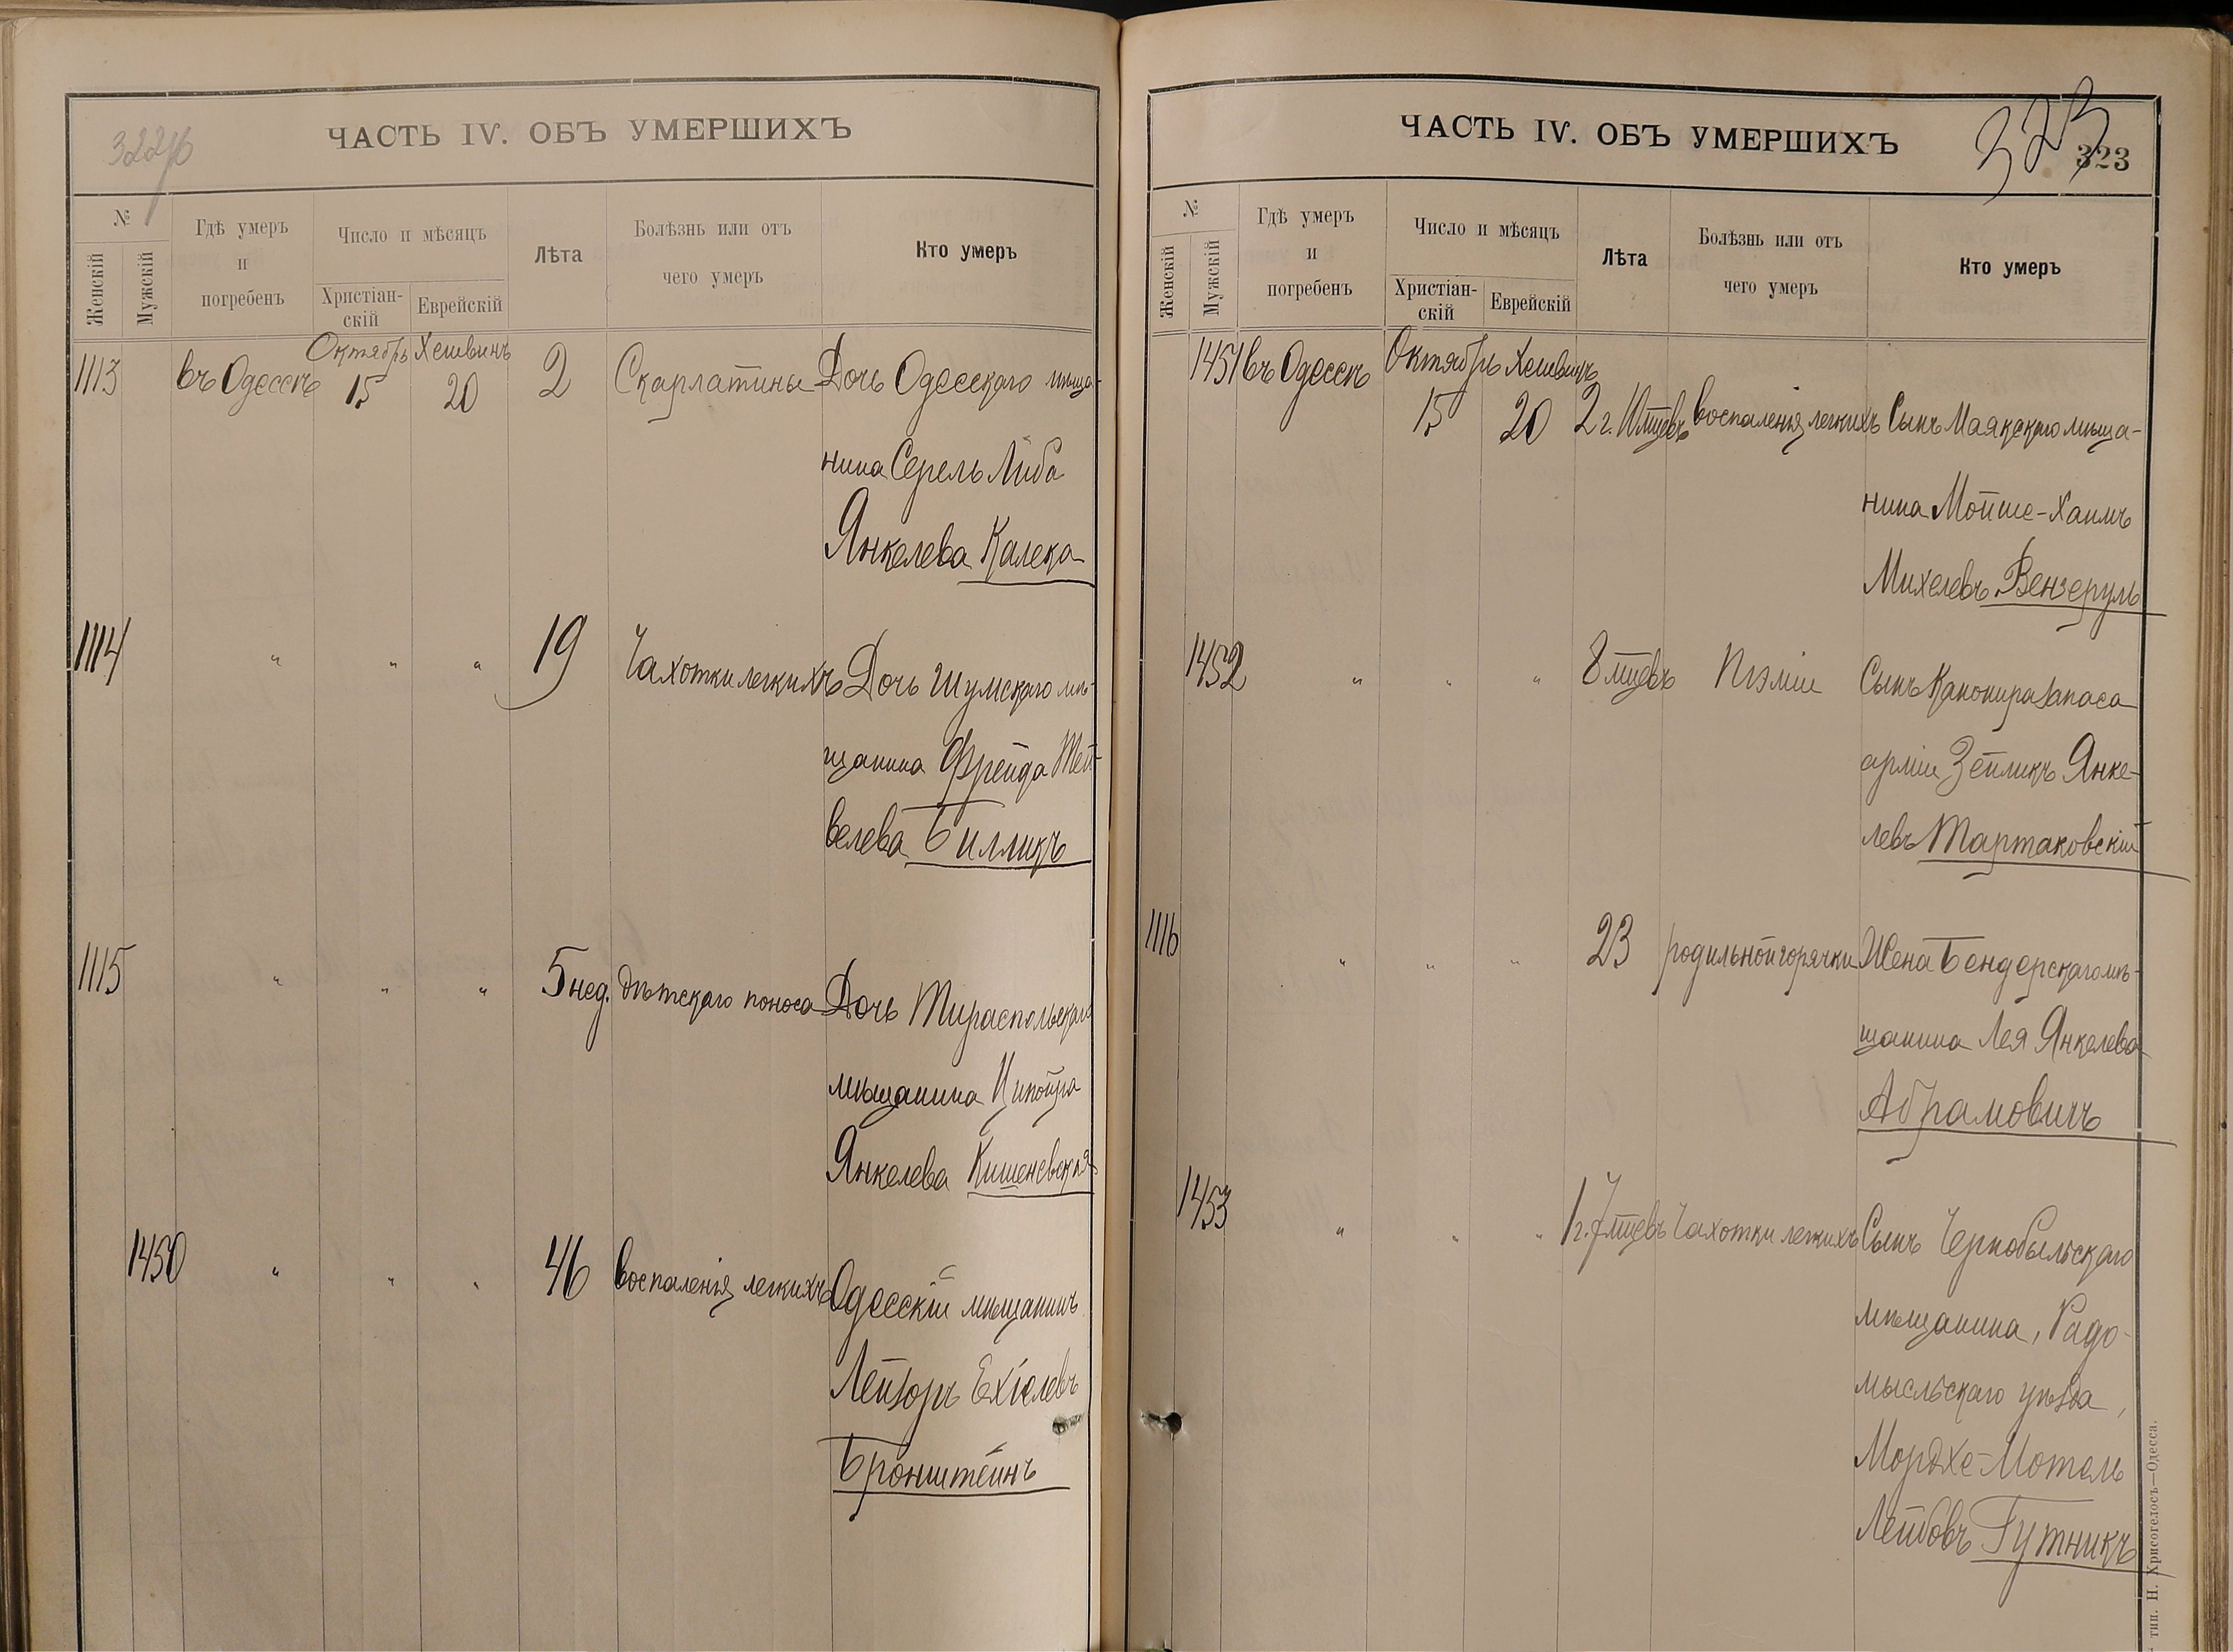 322об
ЧАСТЬ IV. ОБЪ УМЕРШИХЪ
№
Женскій
Мужскій
Гдѣ умеръ
и
погребенъ
Число и мѣсяцъ
Христіан-
скій
Еврейскій
Лѣта
Болѣзнь или отъ
чего умеръ
Кто умеръ
Октябрь Хешвинъ
1113 въ Одессѣ 15 20 2 Скарлатины Дочь Одесскаго мѣща-
нина Серель Либа
Янкелева Калека
1114 " " " 19 Чахотки легкихъ Дочь Шумскаго мѣ-
щанина Фрейда Тей-
велева Билликъ
1115 " " " 5 нед. дѣтскаго поноса Дочь Тираспольскаго
мѣщанина Ципойра
Янкелева Кишеневская
1450 " " " 46 воспаленія легкихъ Одесскій мѣщанинъ
Лейзоръ Ехіелевъ
Бронштейнъ
ЧАСТЬ IV. ОБЪ УМЕРШИХЪ
323
323
№
Женскій
Мужскій
Гдѣ умеръ
и
погребенъ
Число и мѣсяцъ
Христіан-
скій
Еврейскій
Лѣта
Болѣзнь или отъ
чего умеръ
Кто умеръ
1451 въ Одессѣ Октябрь Хешвинъ
15 20 2 г. 10 мцевъ воспаленія легкихъ Сынъ Маякскаго мѣща-
нина Мойше-Хаимъ
Михелевъ Вензеруль
1452 " " " 8 мцевъ Піэміи Сынъ Канонира запаса
арміи Зейликъ Янке-
левъ Тартаковскій
1116 " " " 23 родильной горячки Жена Бендерскаго мѣ-
щанина Лея Янкелева
Абрамовичъ
1453 " " " 1 г. 7 мцевъ Чахотки легкихъ Сынъ Чернобыльскаго
мѣщанина, Радо-
мысльскаго уѣзда,
Мордхе-Мотель
Лейбовъ Гутникъ
тип. Н. Хрисогелосъ—Одесса.